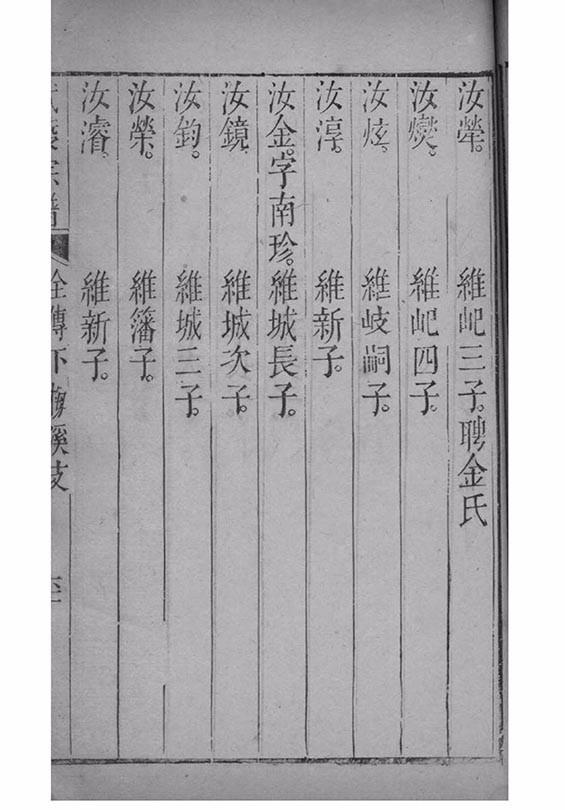 汝犖。維屺三子。聘金氏
汝爕。維屺四子。
汝炫。維岐嗣子。
汝淳。維新子。
汝金。字南珍。維城長子。
汝鏡。維城次子。
汝鈞。維城三子。
汝榮。維籓子。
汝濬。維新子。
宗譜 全傳下 溪支